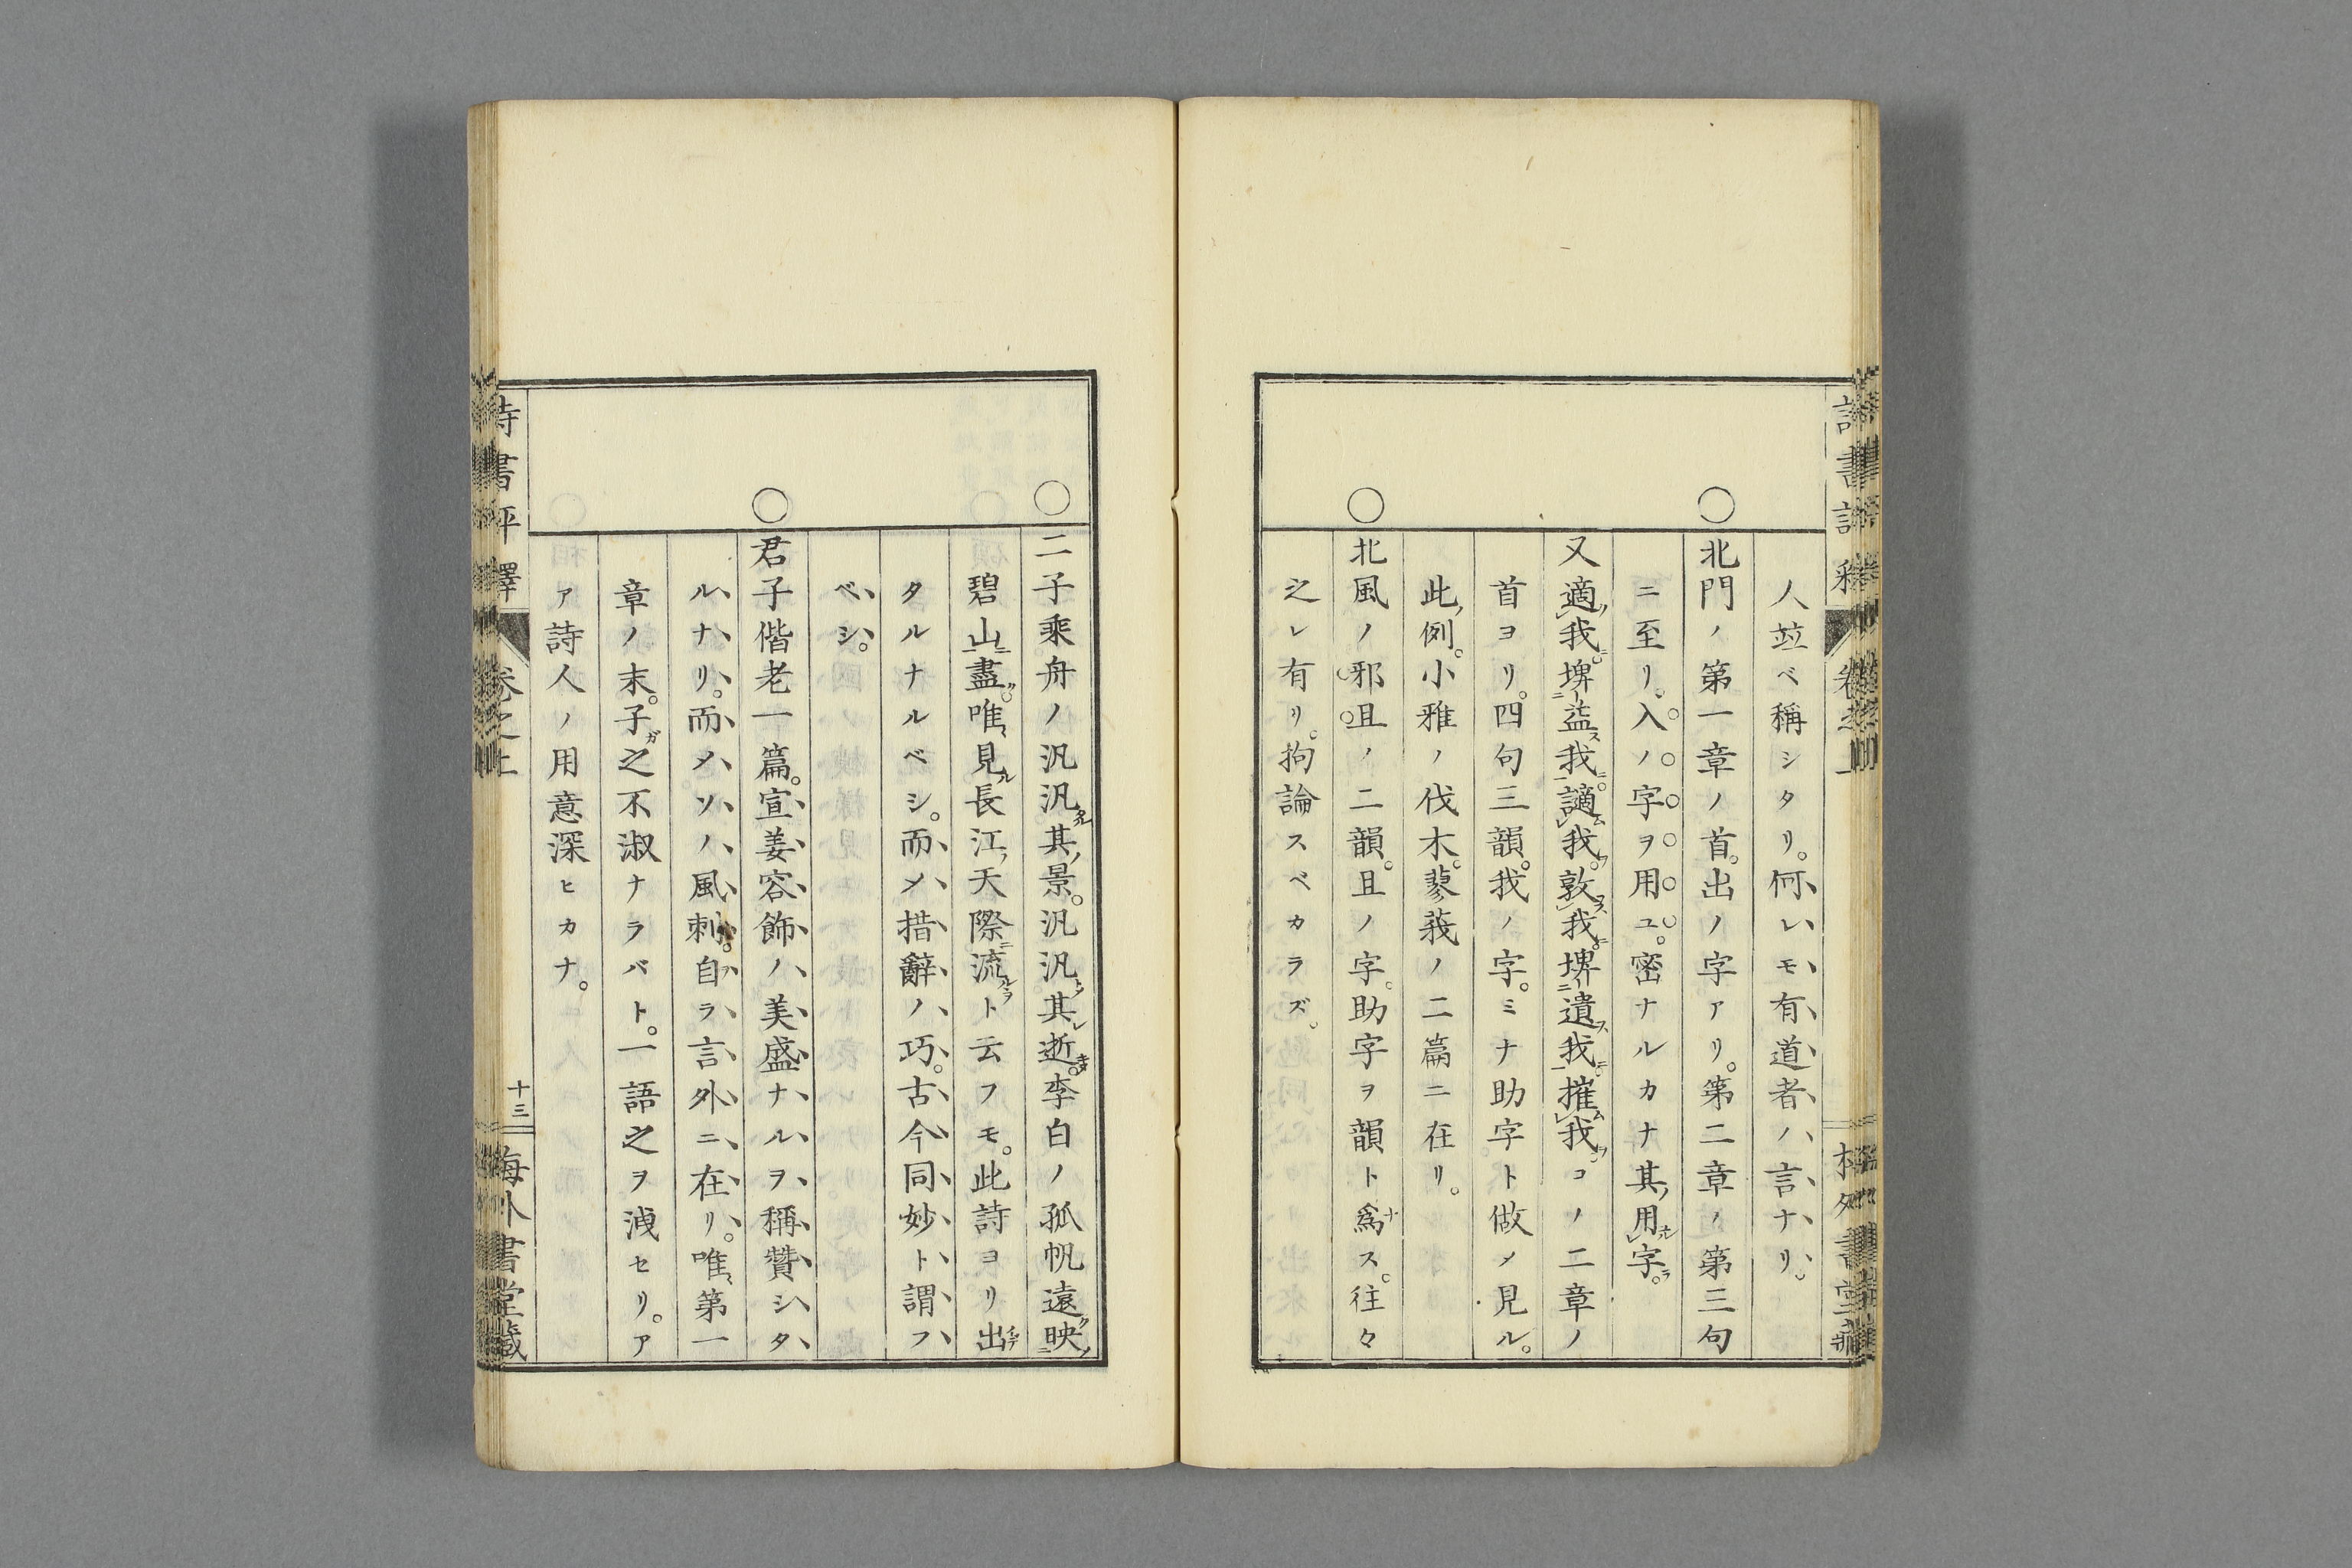 人竝ベ稱シタリ。何レモ有道者ノ言ナリ。
○北門ノ第一章ノ首。出ノ字アリ。第二章ノ第三句
ニ至リ。入ノ字ヲ用ユ。密ナルカナ其ノ用ル字ヲ。
又適我。埤益我。讁我。敦我。埤遺我。摧我。コノ二章ノ
首ヨリ。四句三韻。我ノ字。ミナ助字ト做メ見ル。
此ノ例。小雅ノ伐木。蓼莪ノ二篇ニ在リ。
○北風ノ邪且ノ二韻。且ノ字。助字ヲ韻ト爲ス。往々
之レ有リ。拘論スベカラズ。
○二子乘舟ノ汎汎其景。汎汎其逝。李白ノ孤帆遠映
碧山盡。唯見長江天際流ト云フモ。此詩ヨリ出
タルナルベシ。而メ措辭ノ巧。古今同妙ト謂フ
ベシ。
○君子偕老一篇。宣姜容飾ノ美盛ナルヲ稱贊シタ
ルナリ。而メソノ風刺。自ラ言外ニ在リ。唯第一
章ノ末。子之不淑ナラバト。一語之ヲ洩セリ。ア
ア詩人ノ用意深ヒカナ。
詩書評釋 卷之上 十三 海外書堂藏